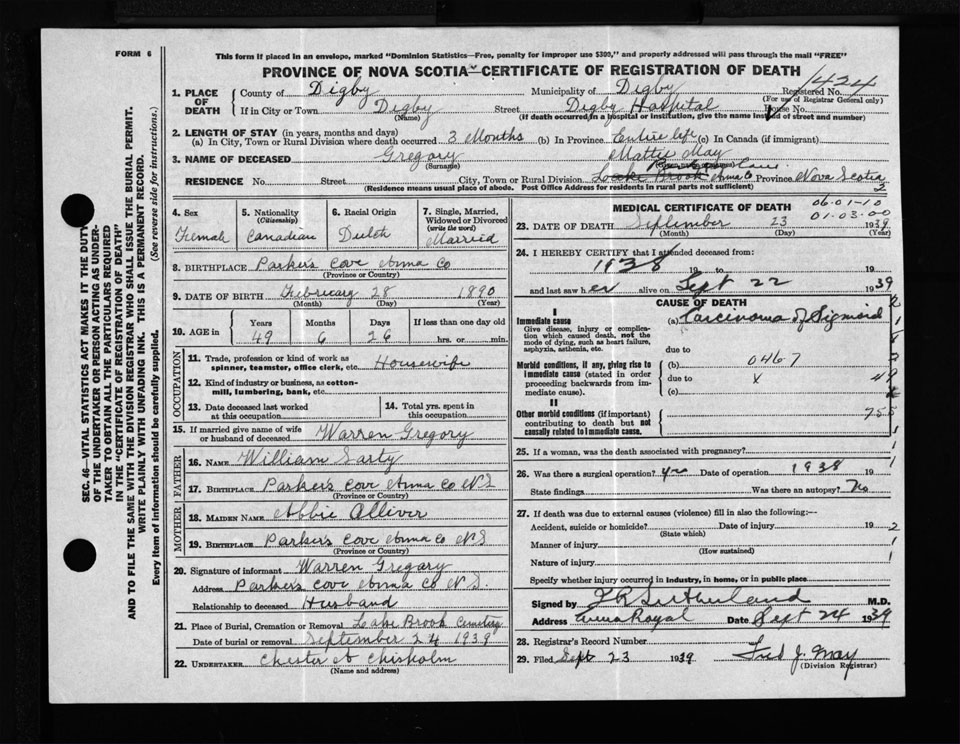 FORM 6
This form if placed in an envelope, marked "Dominion Statistics—Free, penalty for improper use $300," and properly addressed will pass through the mail "FREE"
PROVINCE OF NOVA SCOTIA—CERTIFICATE OF REGISTRATION OF DEATH
1424
1. PLACE OF DEATH
County of Digby Municipality of Digby Registered No.
(For use of Registrar General only)
If in City or Town Digby Street Digby Hospital House No.
(Name) (If death occurred in a hospital or institution, give the name instead of street and number)
2. LENGTH OF STAY (in years, months and days)
(a) In City, Town or Rural Division where death occurred 3 Months (b) In Province Entire life (c) In Canada (if immigrant)
3. NAME OF DECEASED Gregory Mattie May
(Surname)
RESIDENCE No. Street City, Town or Rural Division Brook Anna Co Province Nova Scotia
(Residence means usual place of abode. Post Office Address for residents in rural parts not sufficient)
2
4. Sex
Female
5. Nationality
(Citizenship)
Canadian
6. Racial Origin
Dutch
7. Single, Married, Widowed or Divorced
(write the word)
Married
8. BIRTHPLACE Parkers Cove Anna Co
(Province or Country)
9. DATE OF BIRTH February 28 1890
(Month) (Day) (Year)
10. AGE in Years Months Days If less than one day old
49 6 26 hrs. or min.
OCCUPATION
11. Trade, profession or kind of work as spinner, teamster, office clerk, etc. Housewife
12. Kind of industry or business, as cotton-mill, lumbering, bank, etc.
13. Date deceased last worked at this occupation
14. Total yrs. spent in this occupation
15. If married give name of wife or husband of deceased Warren Gregory
FATHER
16. Name William Sarty
17. Birthplace Parkers Cove Anna Co N S
(Province or Country)
MOTHER
18. Maiden Name Abbie Olliver
19. Birthplace Parkers Cove Anna Co N S
(Province or Country)
20. Signature of informant Warren Gregory
Address Parkers Cove Anna Co N S.
Relationship to deceased Husband
21. Place of Burial, Cremation or Removal Lake Brook Cemetery
Date of burial or removal September 24 1939
22. Undertaker Chester A Chisholm
(Name and address)
MEDICAL CERTIFICATE OF DEATH
06-01-10
01-03-00
23. DATE OF DEATH September 23 1939
(Month) (Day) (Year)
24. I HEREBY CERTIFY that I attended deceased from:
1938 19 to 19
and last saw her alive on Sept 22 1939
CAUSE OF DEATH
I
Immediate cause
Give disease, injury or complication which caused death, not the mode of dying, such as heart failure, asphyxia, asthenia, etc.
(a) Carcinoma of Sigmoid
due to
Morbid conditions, if any, giving rise to immediate cause (stated in order proceeding backwards from immediate cause).
(b) 0467
due to x
(c)
II
Other morbid conditions (if important) contributing to death but not causally related to immediate cause.
25. If a woman, was the death associated with pregnancy?
26. Was there a surgical operation? yes Date of operation 1938 19
State findings Was there an autopsy? No
27. If death was due to external causes (violence) fill in also the following:—
Accident, suicide or homicide? Date of injury 19
(State which)
Manner of injury
(How sustained)
Nature of injury
Specify whether injury occurred in industry, in home, or in public place
Signed by Sutherland M.D.
Address Anna Royal Date Sept 24 1939
28. Registrar's Record Number
29. Filed Sept 23 1939 Fred J. May
(Division Registrar)
SEC. 46—VITAL STATISTICS ACT MAKES IT THE DUTY
OF THE UNDERTAKER OR PERSON ACTING AS UNDER-
TAKER TO OBTAIN ALL THE PARTICULARS REQUIRED
IN THE "CERTIFICATE OF REGISTRATION OF DEATH"
AND TO FILE THE SAME WITH THE DIVISION REGISTRAR WHO SHALL ISSUE THE BURIAL PERMIT.
WRITE PLAINLY WITH UNFADING INK. THIS IS A PERMANENT RECORD.
Every item of information should be carefully supplied. (See reverse side for instructions.)